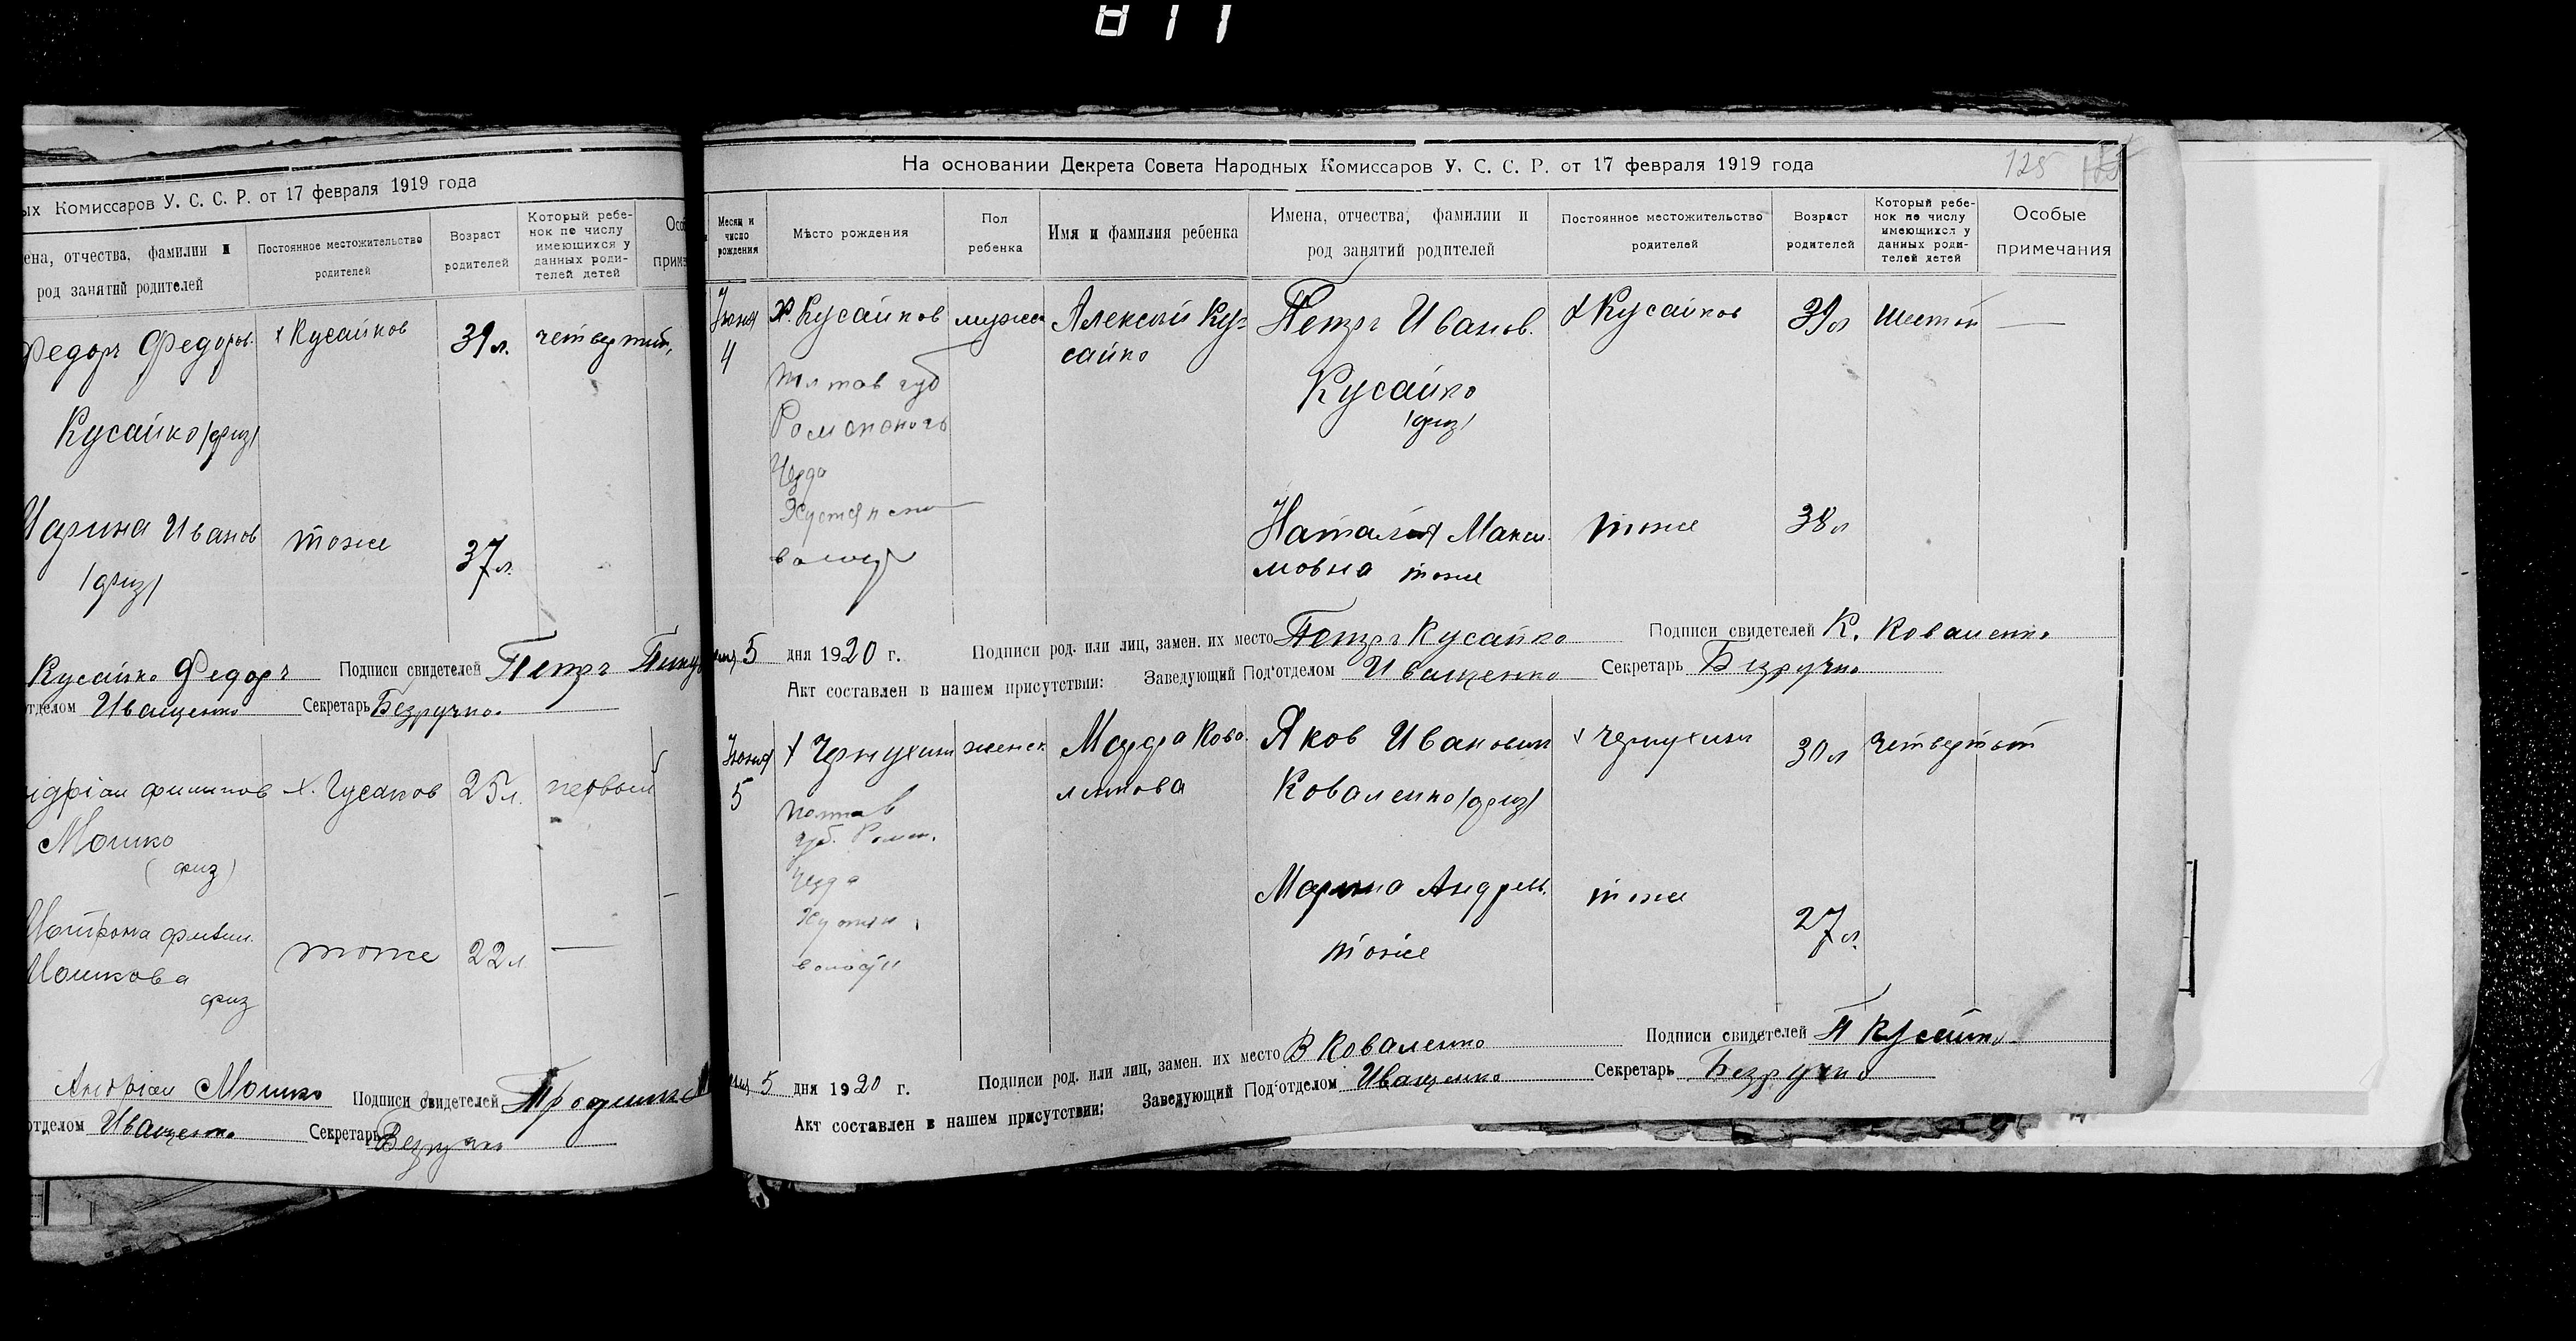 811
ых Комиссаров У. С. С. Р. от 17 февраля 1919 года
ена, отчества, фамилии и род занятий родителей
Постоянное местожительство родителей
Возраст родителей
Который ребе-
нок по числу
имеющихся у
данных роди-
телей детей
Федоръ Федоров. х Кусайков 39 л. четвертий,
Кусайко /физ/
Марина Иванов тоже 37 л.
/физ/
Кусайко Федоръ Подписи свидетелей Петръ
отделом Иващенко Секретарь Безручко.
х. Гусаков 25 л. первый
Мошко
(физ)
тоже 22 л —
Мошкова
физ
Андріан Мошко Подписи свидетелей
отделом Иващенко Секретарь Безручко
На основании Декрета Совета Народных Комиссаров У. С. С. Р. от 17 февраля 1919 года
125
Месяц и
число
рождения
Мѣсто рождения
Пол
ребенка
Имя и фамилия ребенка
Имена, отчества, фамилии и
род занятий родителей
Постоянное местожительство
родителей
Возраст
родителей
Который ребе-
нок по числу
имеющихся у
данных роди-
телей детей
Особые
примечания
Июня х. Кусайков мужск Алексий Ку- Петръ Иванов. х Кусайков 39 л Шестой —
4 сайко
Полтав губ Кусайко
/физ/
Уезда
Наталия Макси- тоже 38 л
мовна тоже
5 дня 1920 г. Подписи род. или лиц, замен. их место Петръ Кусайко Подписи свидетелей К. Коваленко
Акт составлен в нашем присутствии: Заведующий Под'отделом Иващенко Секретарь Безручко
Июня х Чернухин женск. Яков Иванович х Чернухин 30 л Четвертый
5 Коваленко /физ/
Полтав
губ. Ромен.
Уезда
Марина Андрее. тоже 27 л.
волости тоже
5 дня 1920 г. Подписи род. или лиц, замен. их место В Коваленко Подписи свидетелей П Кусайко
Акт составлен в нашем присутствии: Заведующий Под'отделом Иващенко Секретарь Безручко